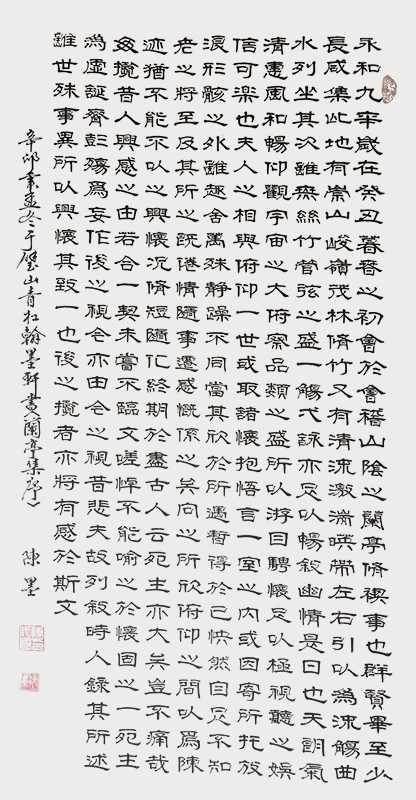 永和九年歲在癸丑暮春之初會於會稽山陰之蘭亭脩禊事也群賢畢至少
長咸集此地有崇山峻嶺茂林脩竹又有清流激湍暎帶左右引以為流觴曲
水列坐其次雖無絲竹管弦之盛一觴一詠亦足以暢敘幽情是日也天朗氣
清惠風和暢仰觀宇宙之大俯察品類之盛所以游目騁懷足以極視聽之娛
信可樂也夫人之相與俯仰一世或取諸懷抱悟言一室之內或因寄所托放
浪形骸之外雖趣舍萬殊靜躁不同當其欣於所遇暫得於己怏然自足不知
老之將至及其所之既倦情隨事遷感慨係之矣向之所欣俯仰之間以為陳
迹猶不能不以之興懷況脩短隨化終期於盡古人云死生亦大矣豈不痛哉
每攬昔人興感之由若合一契未嘗不臨文嗟悼不能喻之於懷固之一死生
為虛誕齊彭殤為妄作後之視今亦由今之視昔悲夫故列敘時人錄其所述
雖世殊事異所以興懷其致一也後之攬者亦將有感於斯文
辛卯年孟冬于璧山青杠翰墨軒書《蘭亭集序》 陳墨